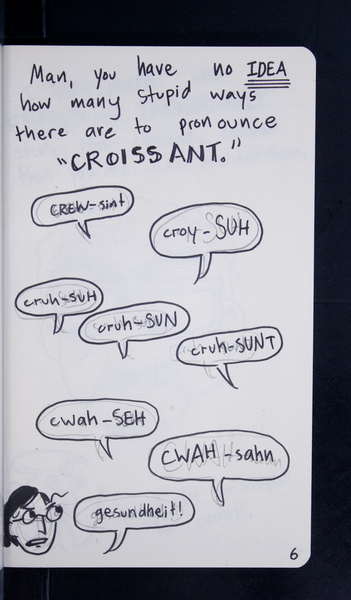 Man, you have no IDEA
how many stupid ways
there are to pronounce
"CROISSANT."
CREW-sint
croy-SUH
cruh-SUH
cruh-SUN
cruh-SUNT
cwah-SEH
CWAH-sahn
gesundheit!
6